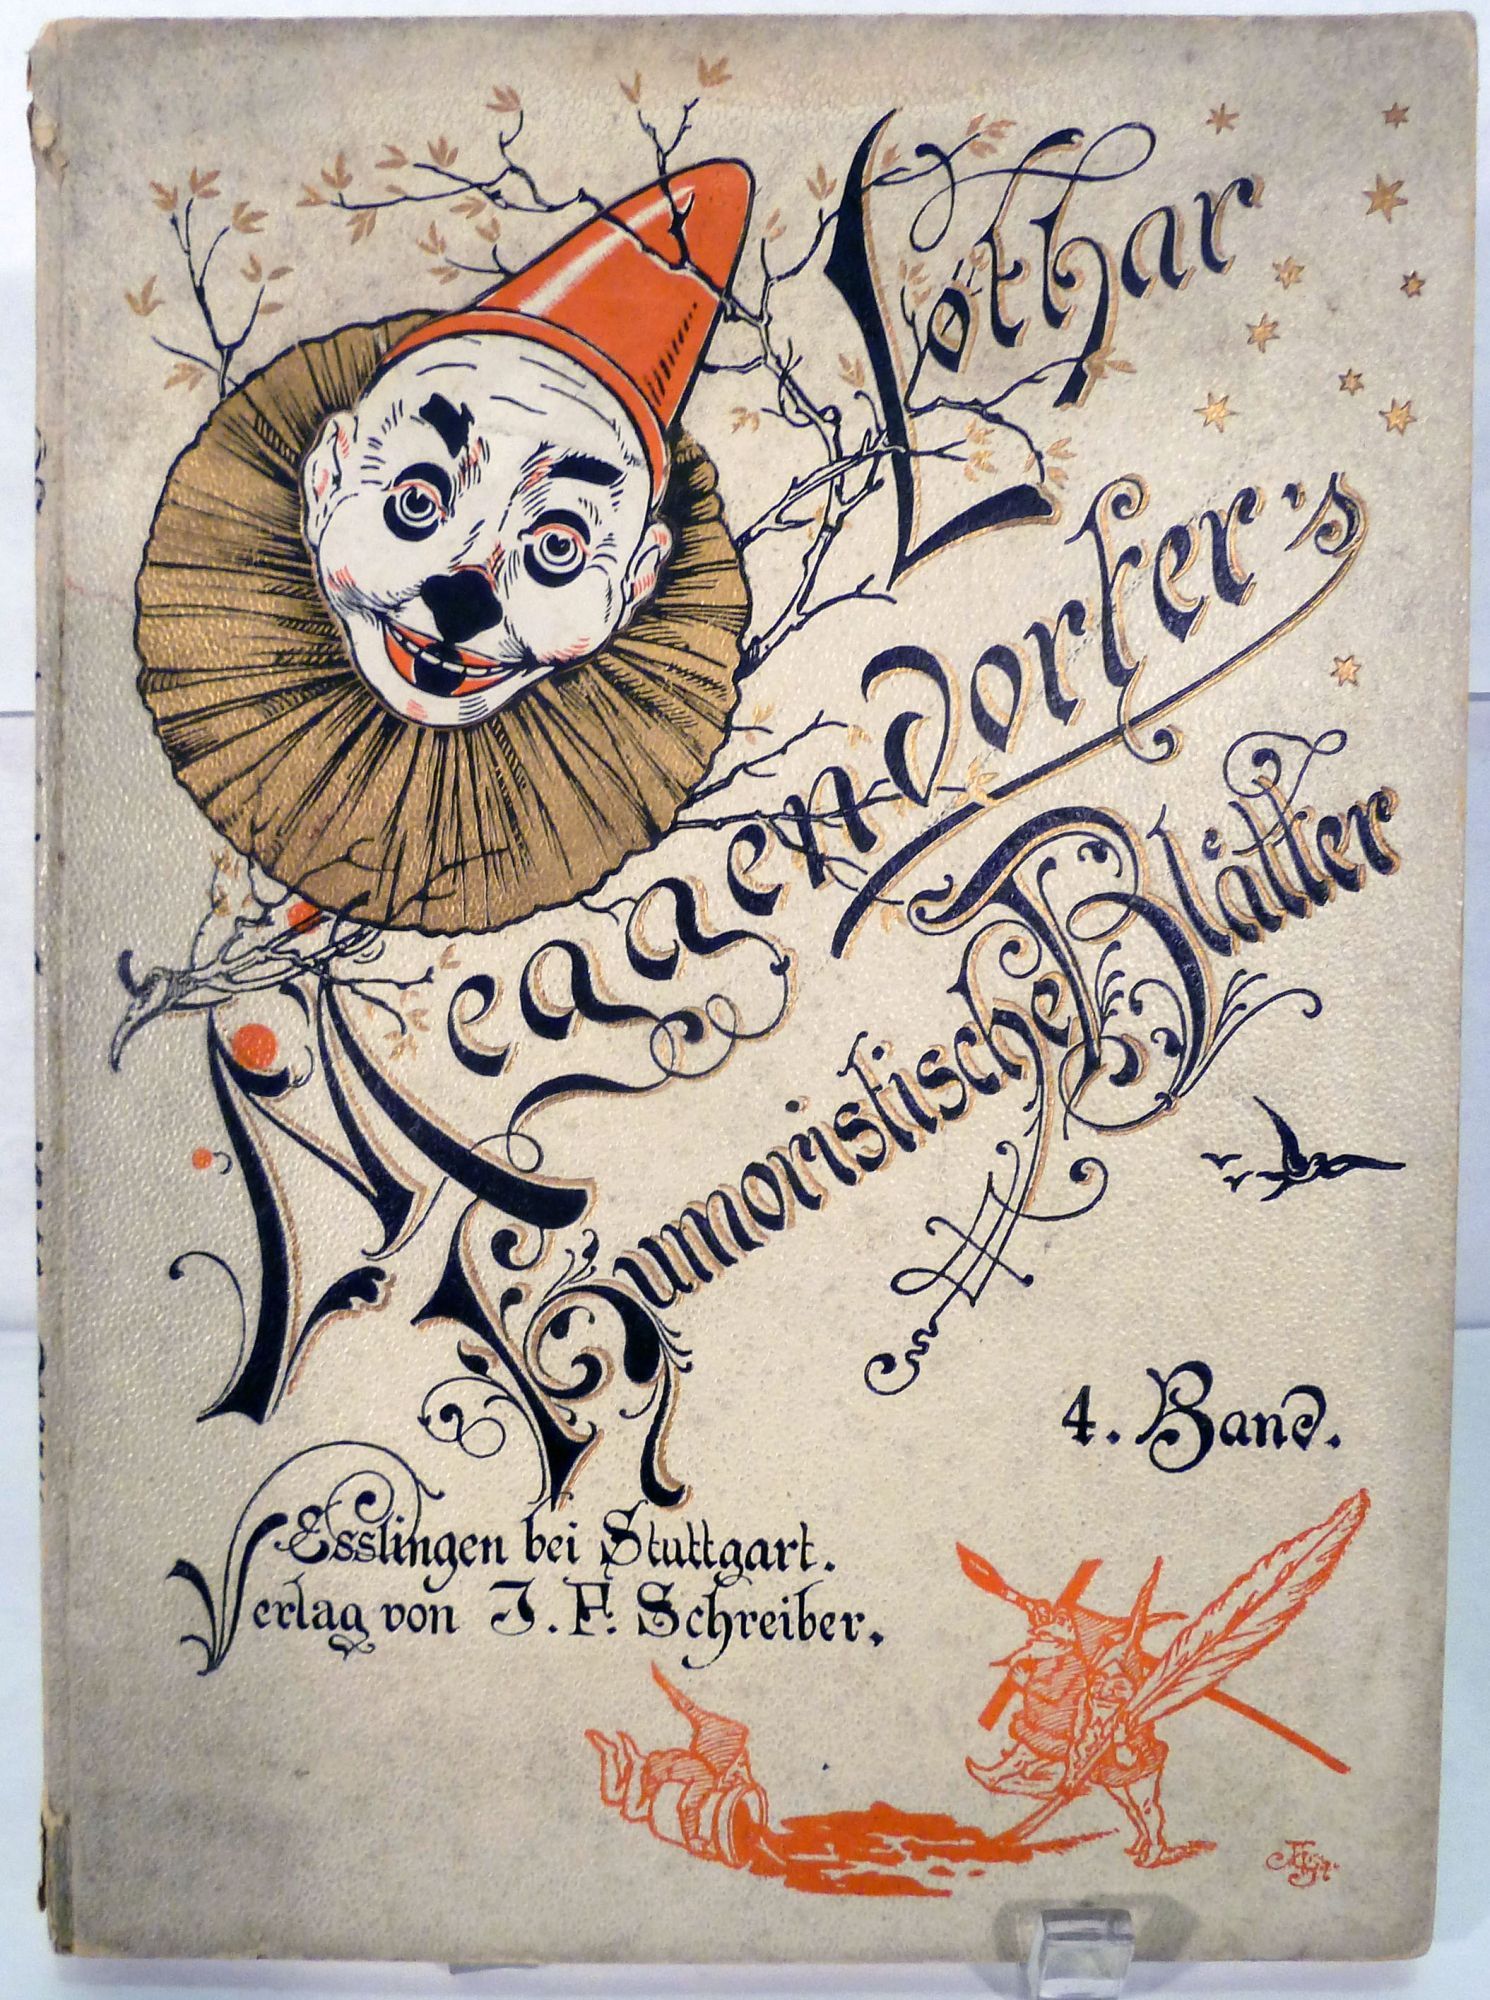 Lothar
Meggendorfer's
Humoristische Blätter
4. Band.
Esslingen bei Stuttgart.
Verlag von J. F. Schreiber.